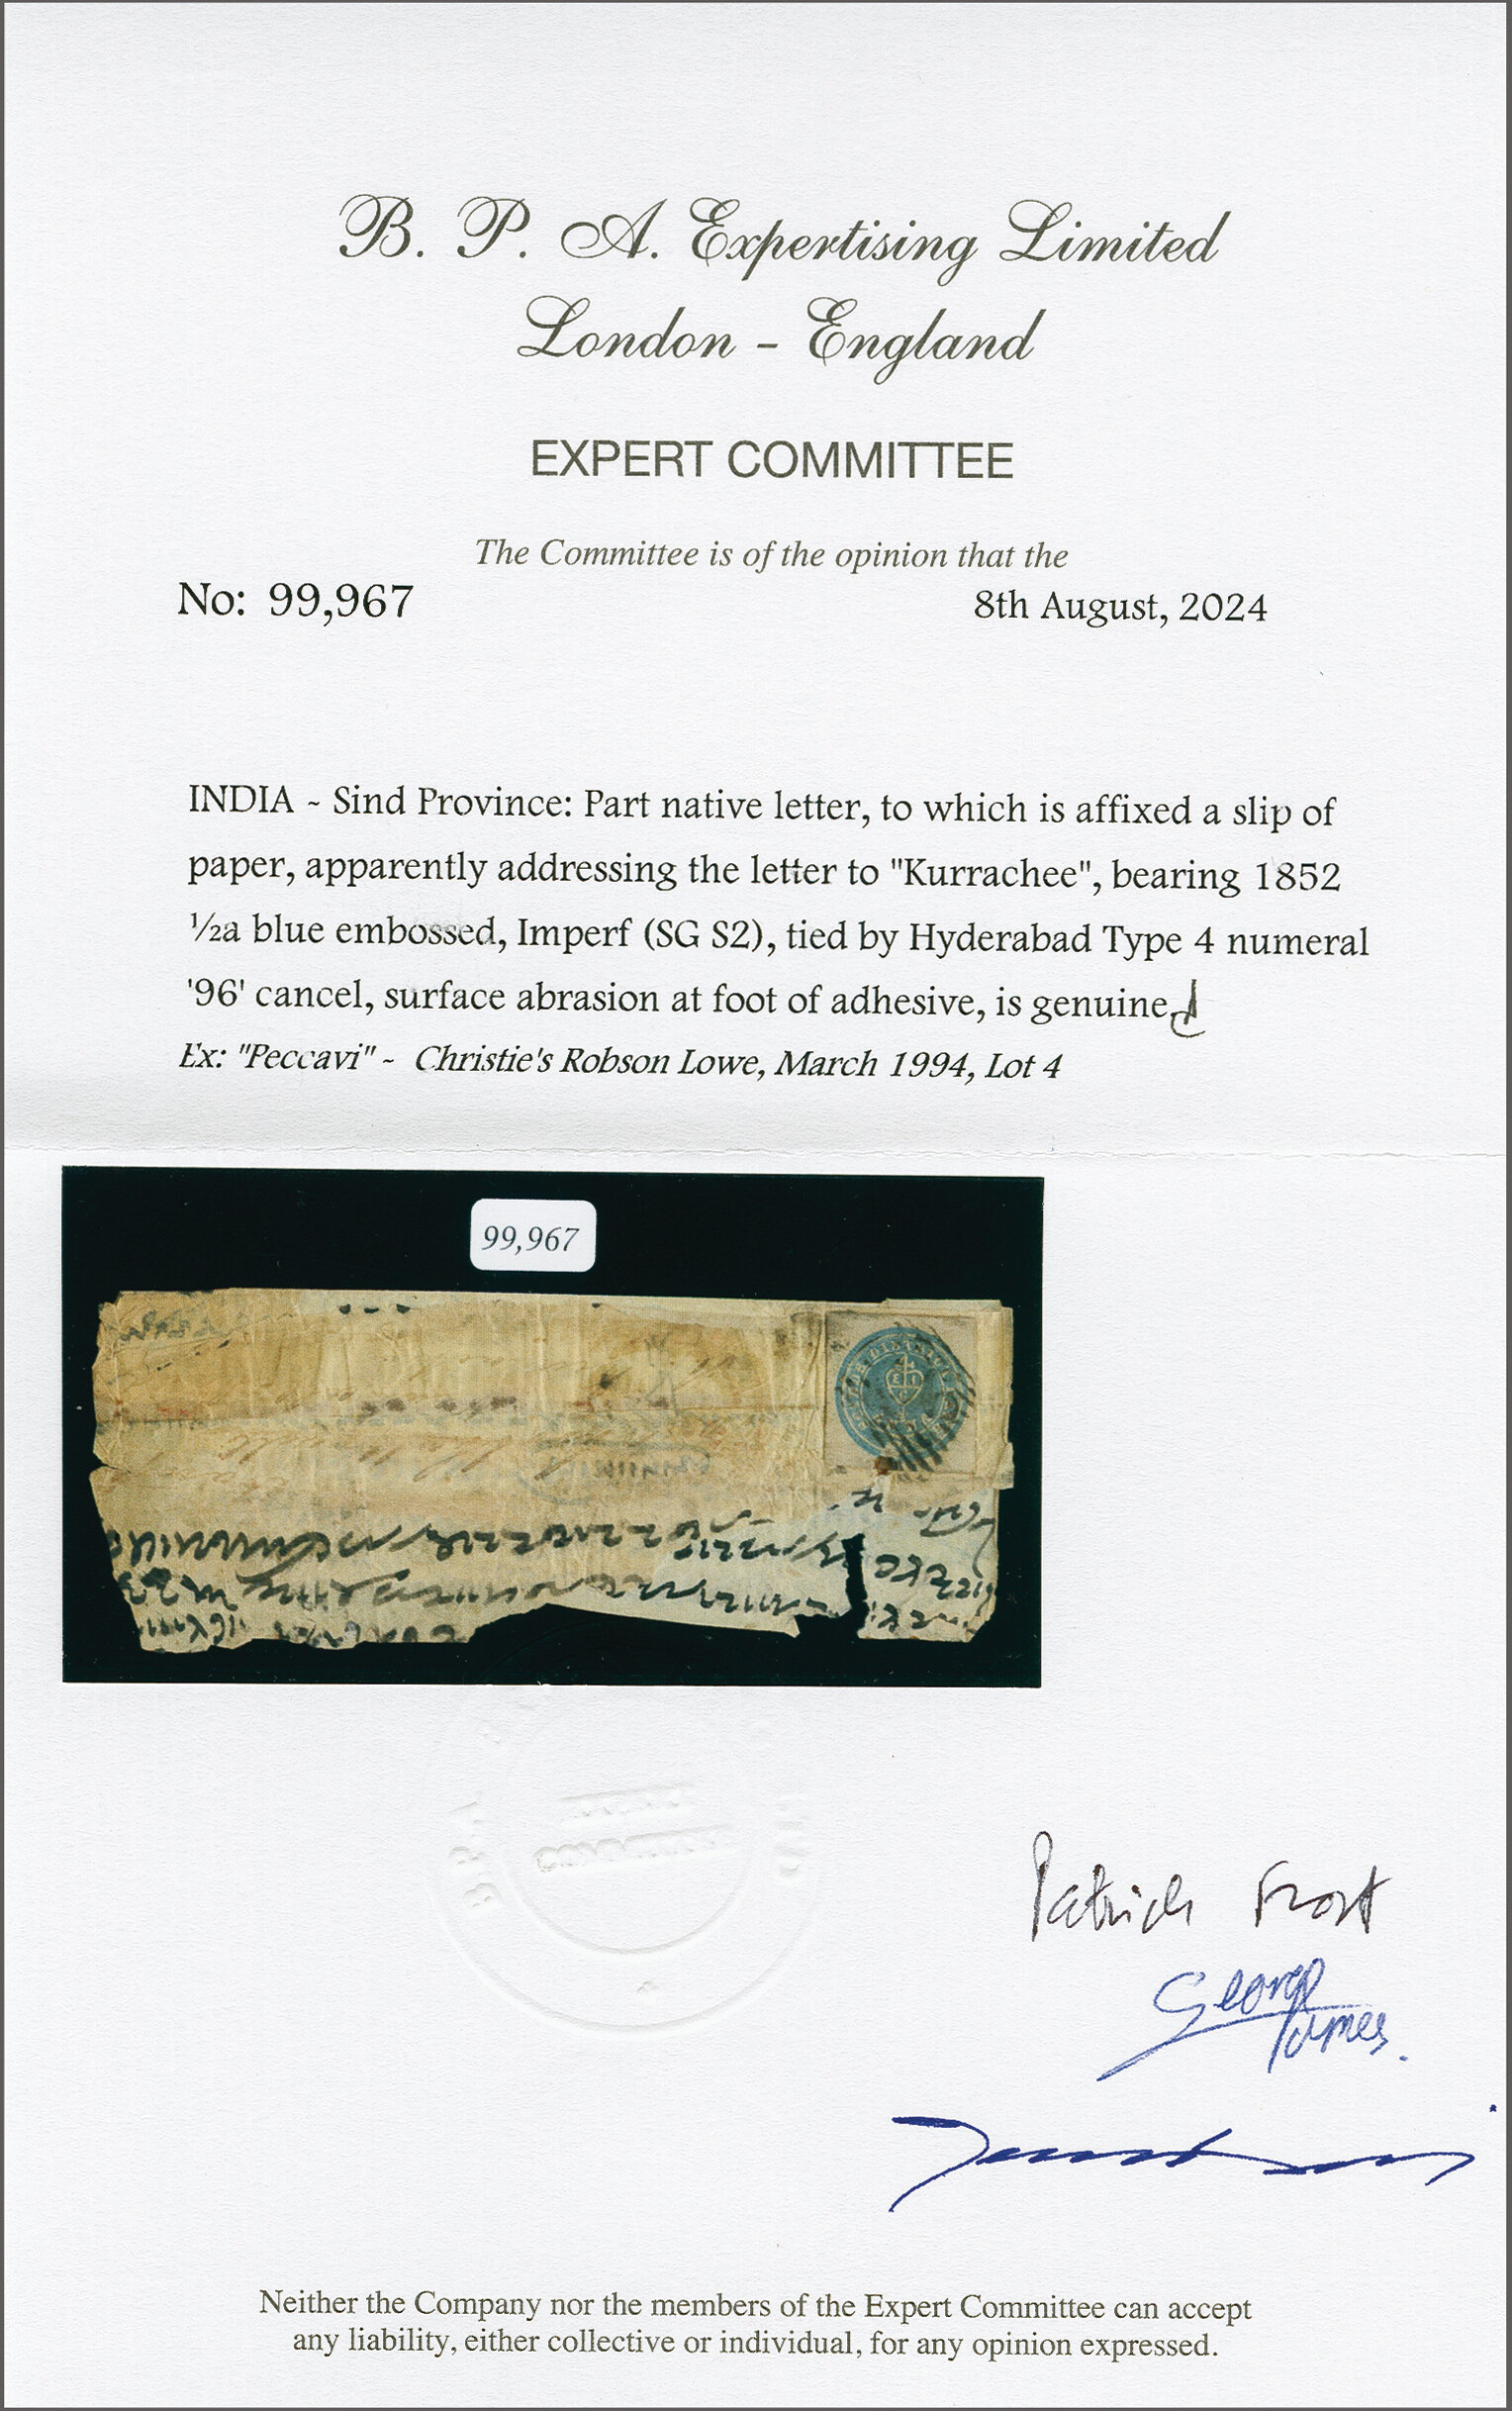 B. P. A. Expertising Limited
London - England
EXPERT COMMITTEE
The Committee is of the opinion that the
No: 99,967
8th August, 2024
INDIA ~ Sind Province: Part native letter, to which is affixed a slip of
paper, apparently addressing the letter to "Kurrachee", bearing 1852
½a blue embossed, Imperf (SG S2), tied by Hyderabad Type 4 numeral
'96' cancel, surface abrasion at foot of adhesive, is genuine.
Ex: "Peccavi" ~ Christie's Robson Lowe, March 1994, Lot 4
99,967
Patrick Frost
George James.
Neither the Company nor the members of the Expert Committee can accept
any liability, either collective or individual, for any opinion expressed.